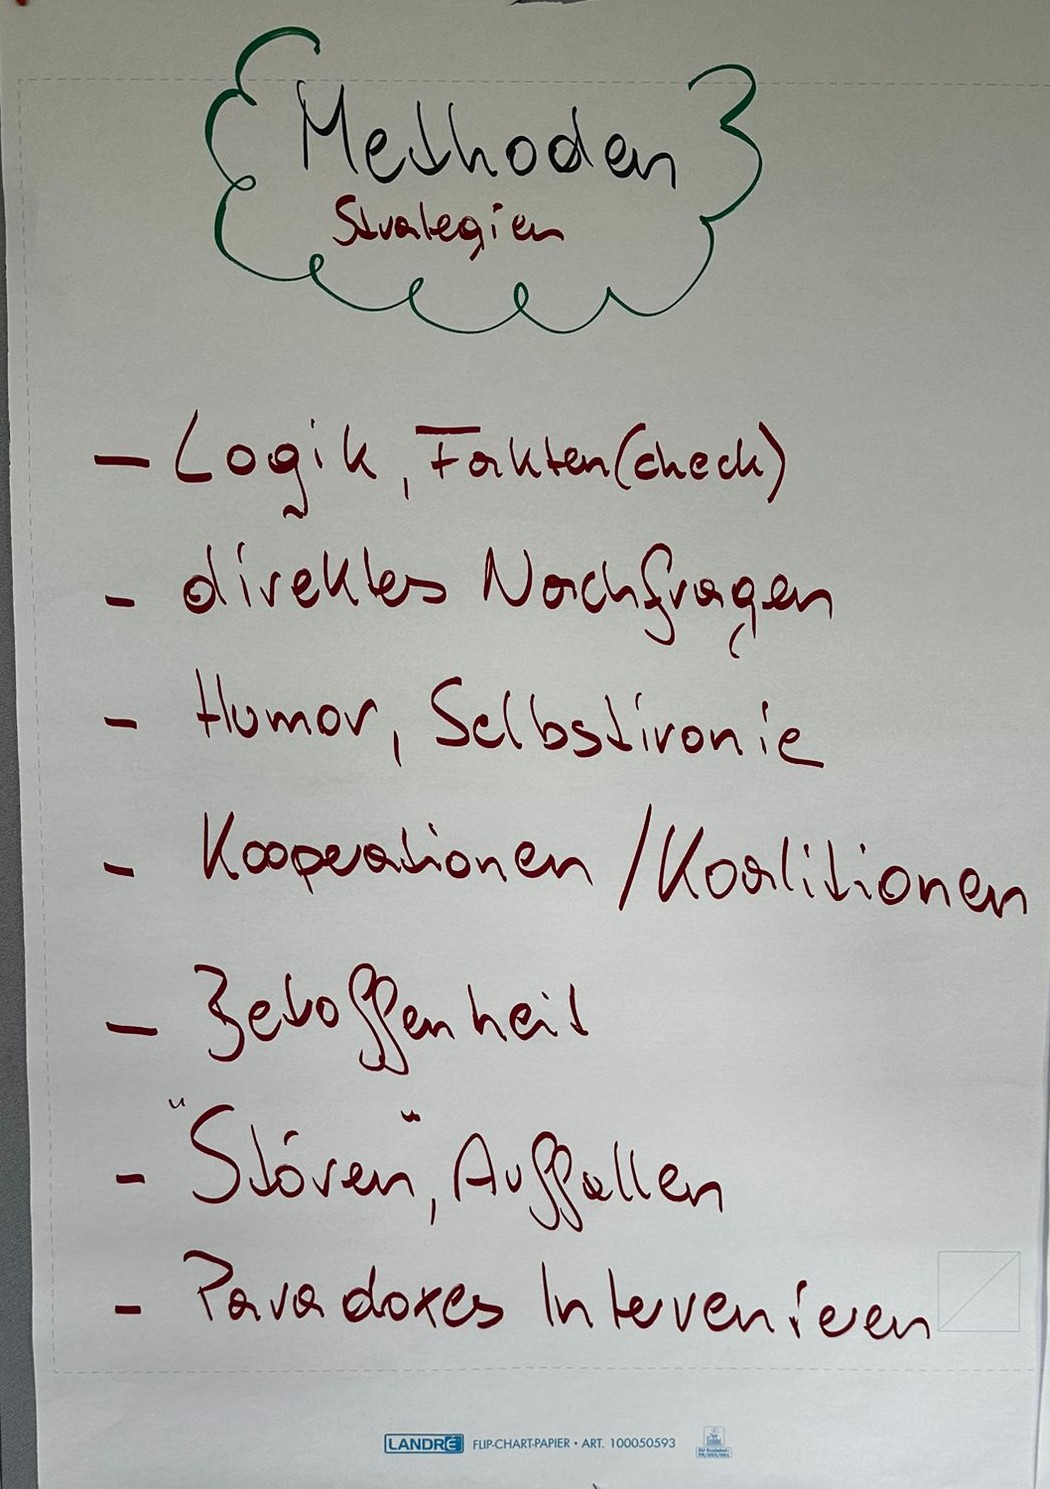 Methoden
Strategien
- Logik, Fakten(check)
- direktes Nachfragen
- Humor, Selbstironie
- Kooperationen / Koalitionen
- Betroffenheit
- "Stören", Auffallen
- Paradoxes Intervenieren
LANDRÉ FLIP-CHART-PAPIER • ART. 100050593